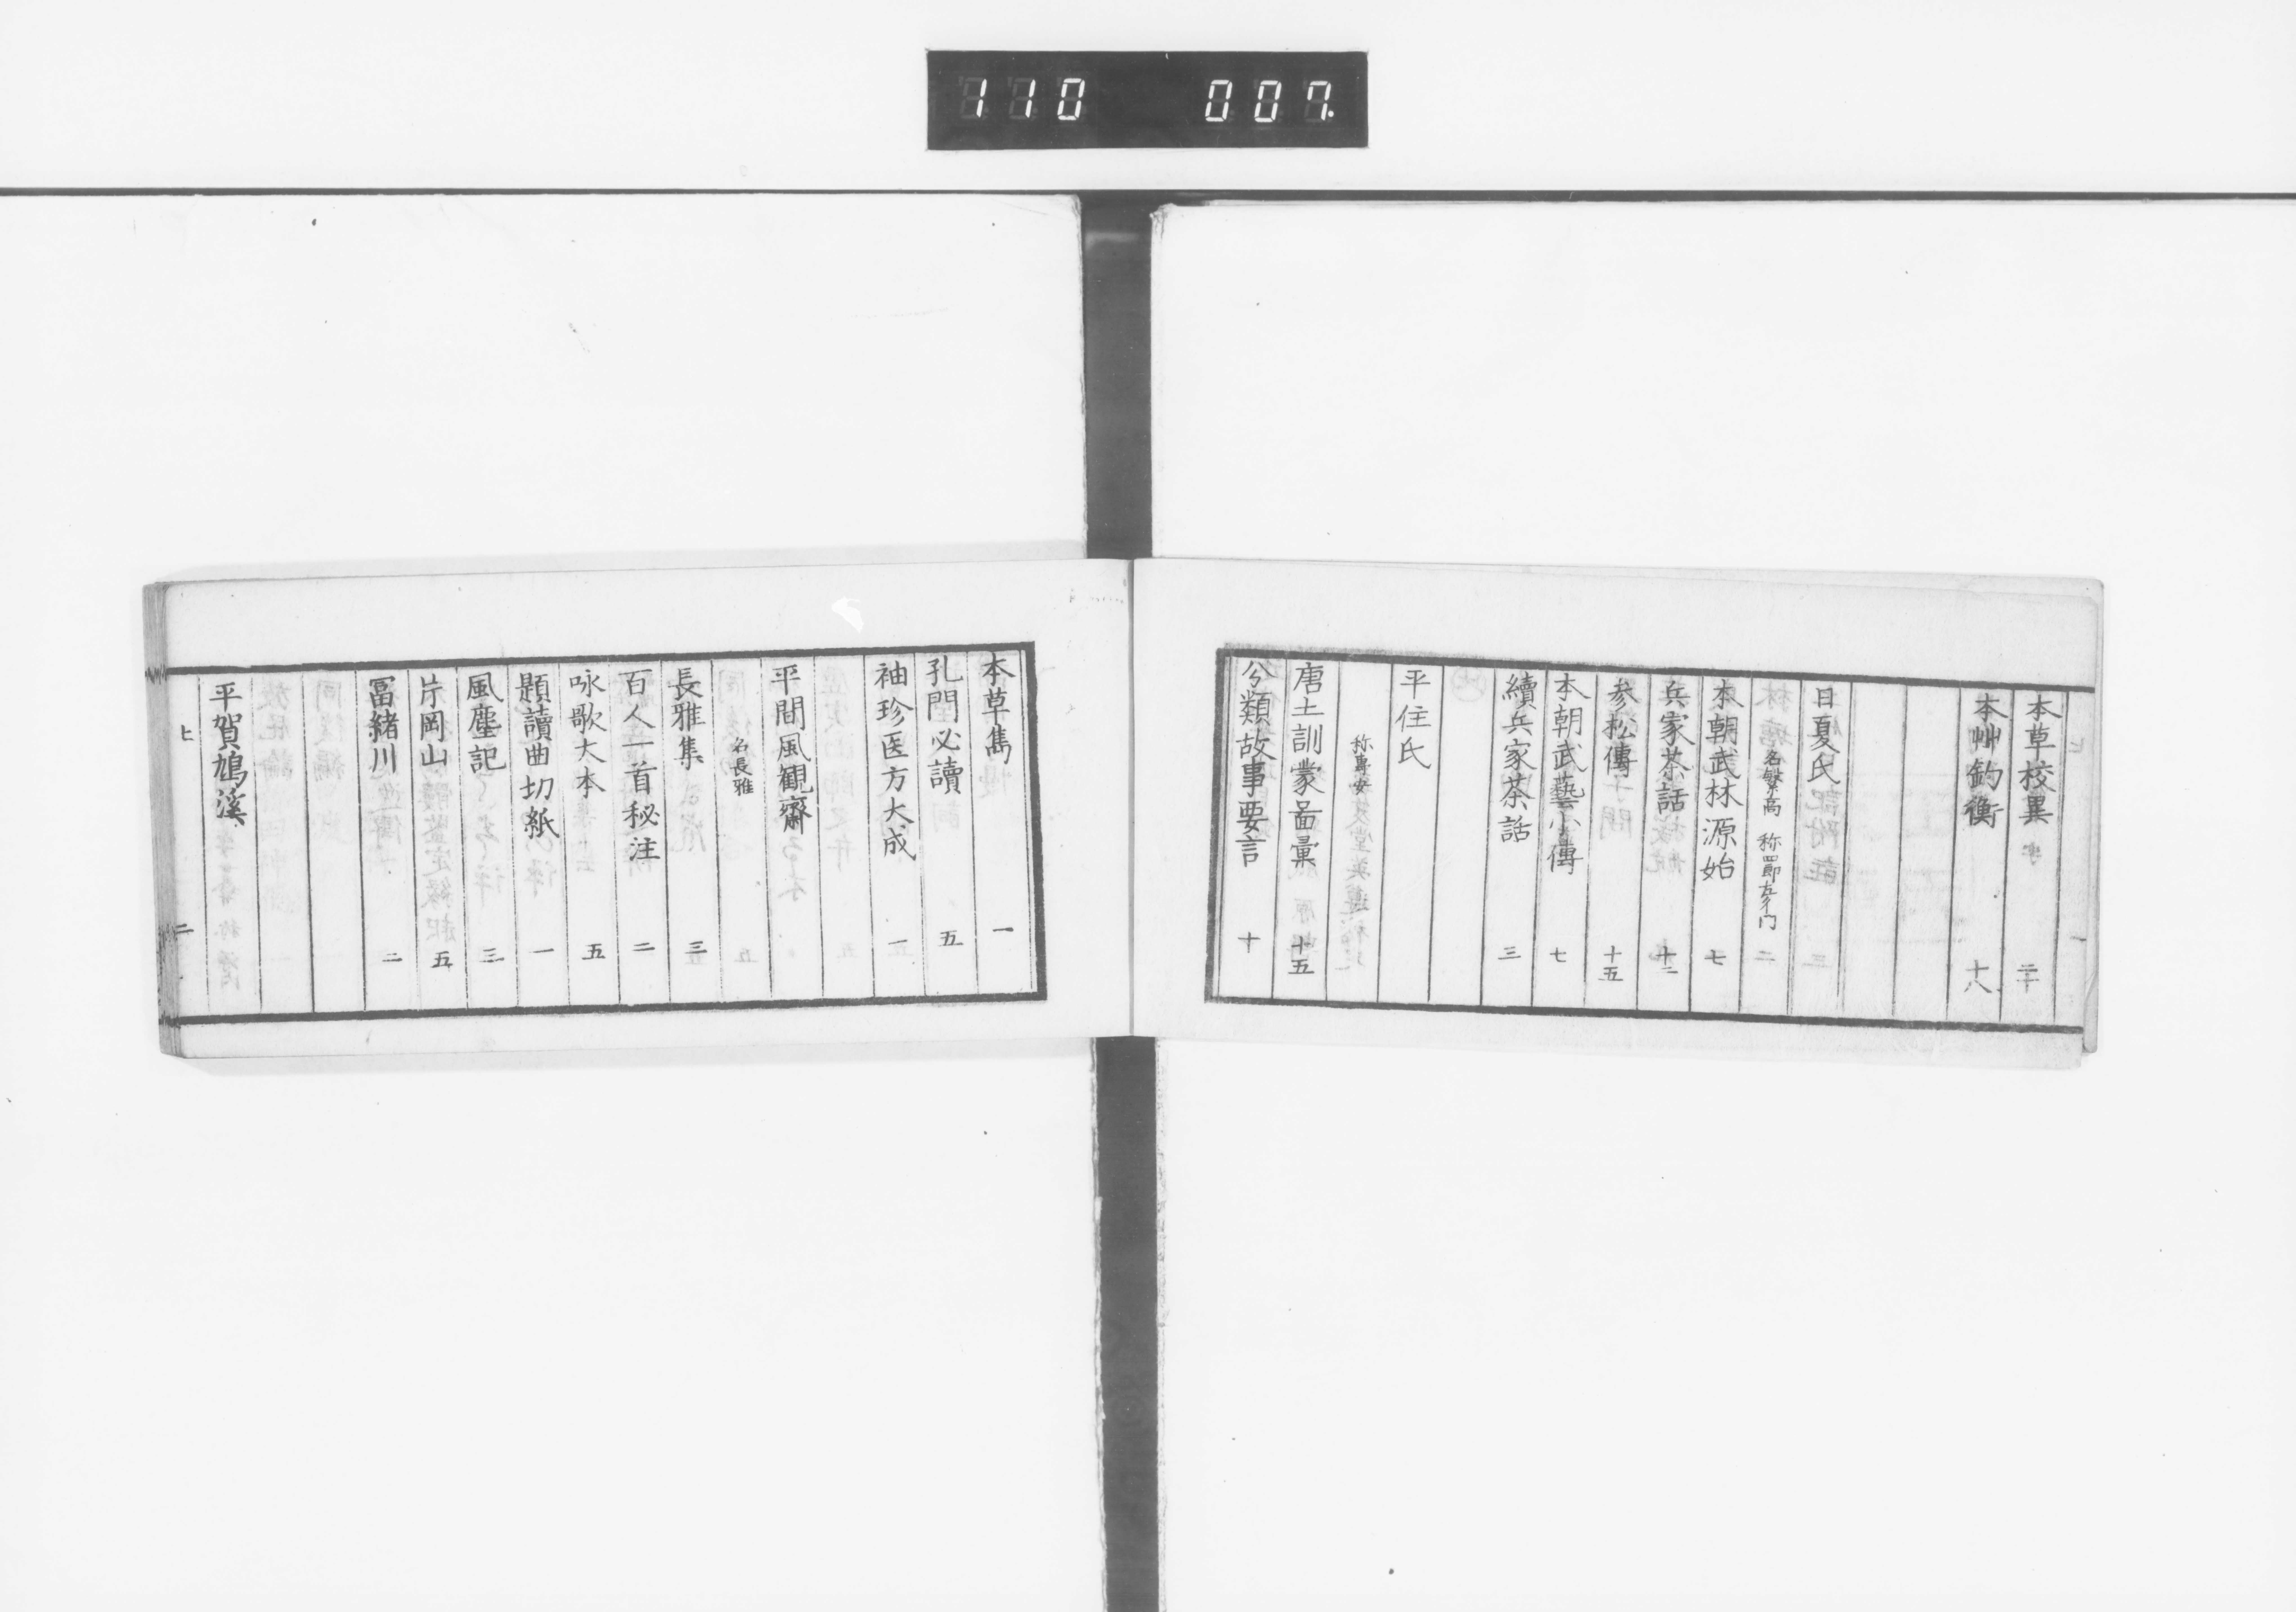 110 007.
本草校異 二十
本艸釣衡 十八
日夏氏
名繁高 称四郎左ヱ門
本朝武林源始 七
兵家茶話 十二
参松傳 十五
本朝武藝小傳 七
續兵家茶話 三
平住氏
称專安
唐土訓蒙啚彙 十五
分類故事要言 十
本草雋 一
孔門必讀 五
袖珍医方大成 一
平間風観齋
名長雅
長雅集 三
百人一首秘注 二
咏歌大本 五
題讀曲切紙 一
風塵記 三
片岡山 五
冨緒川 二
平賀鳩溪
ヒ 二